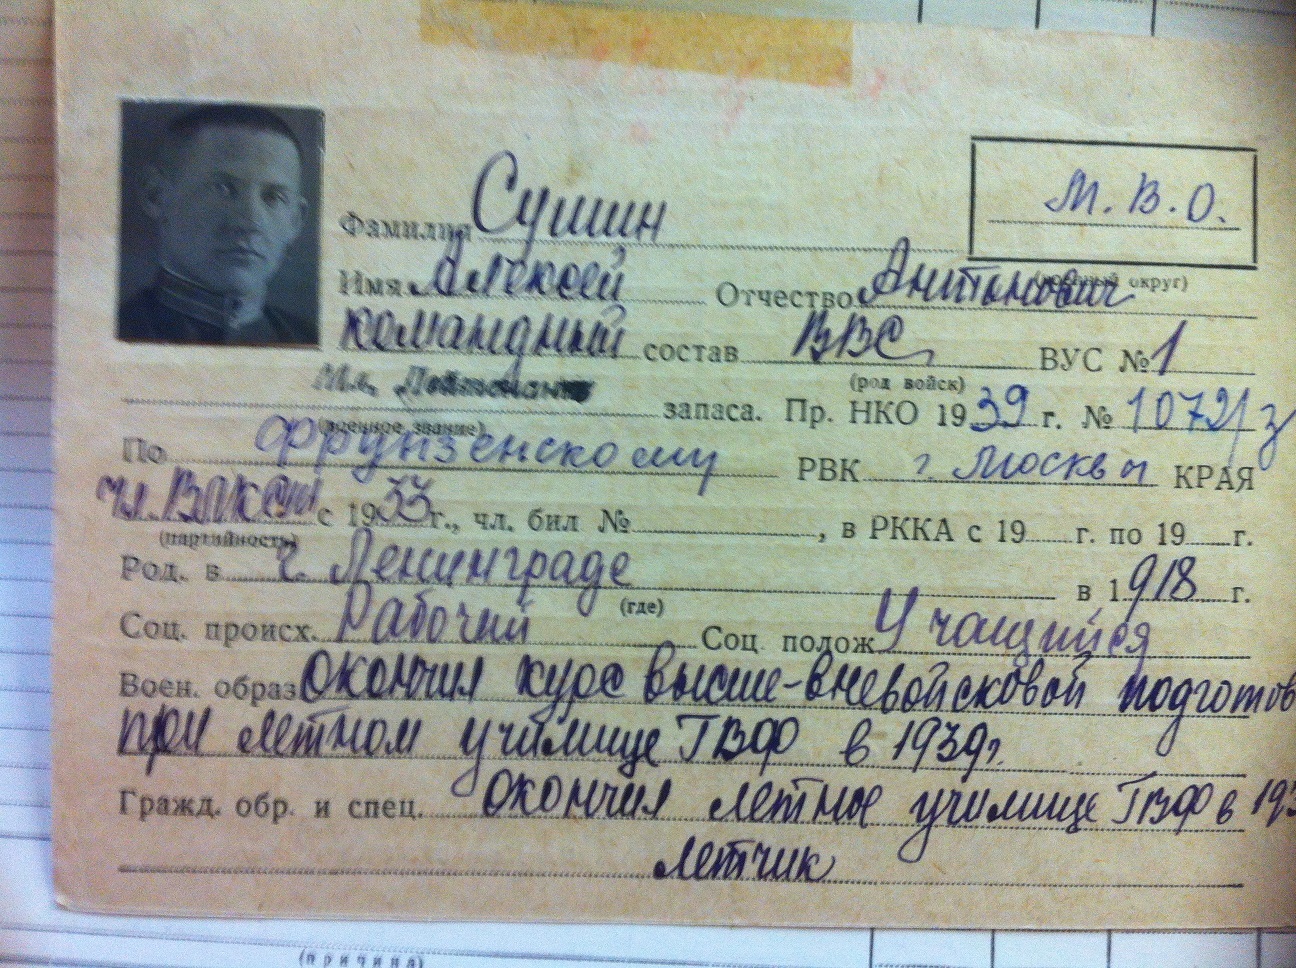 М.В.О.
Фамилия Сушин
(военный округ)
Имя Алексей Отчество Антонович
командный состав ВВС ВУС № 1
Мл. Лейтенант (род войск)
запаса. Пр. НКО 1939 г. № 10721/з
(военное звание)
По Фрунзенскому РВК г. Москвы КРАЯ
чл. ВЛКСМ с 1933 г., чл. бил № , в РККА с 19 г. по 19 г.
(партийность)
Род. в г. Ленинграде в 1918 г.
(где)
Соц. происх. Рабочий Соц. полож Учащийся
Воен. образ окончил курс высше-вневойсковой подготов
при летном училище ГВФ в 1939г.
Гражд. обр. и спец. окончил летное училище ГВФ в 193
летчик
(причина)